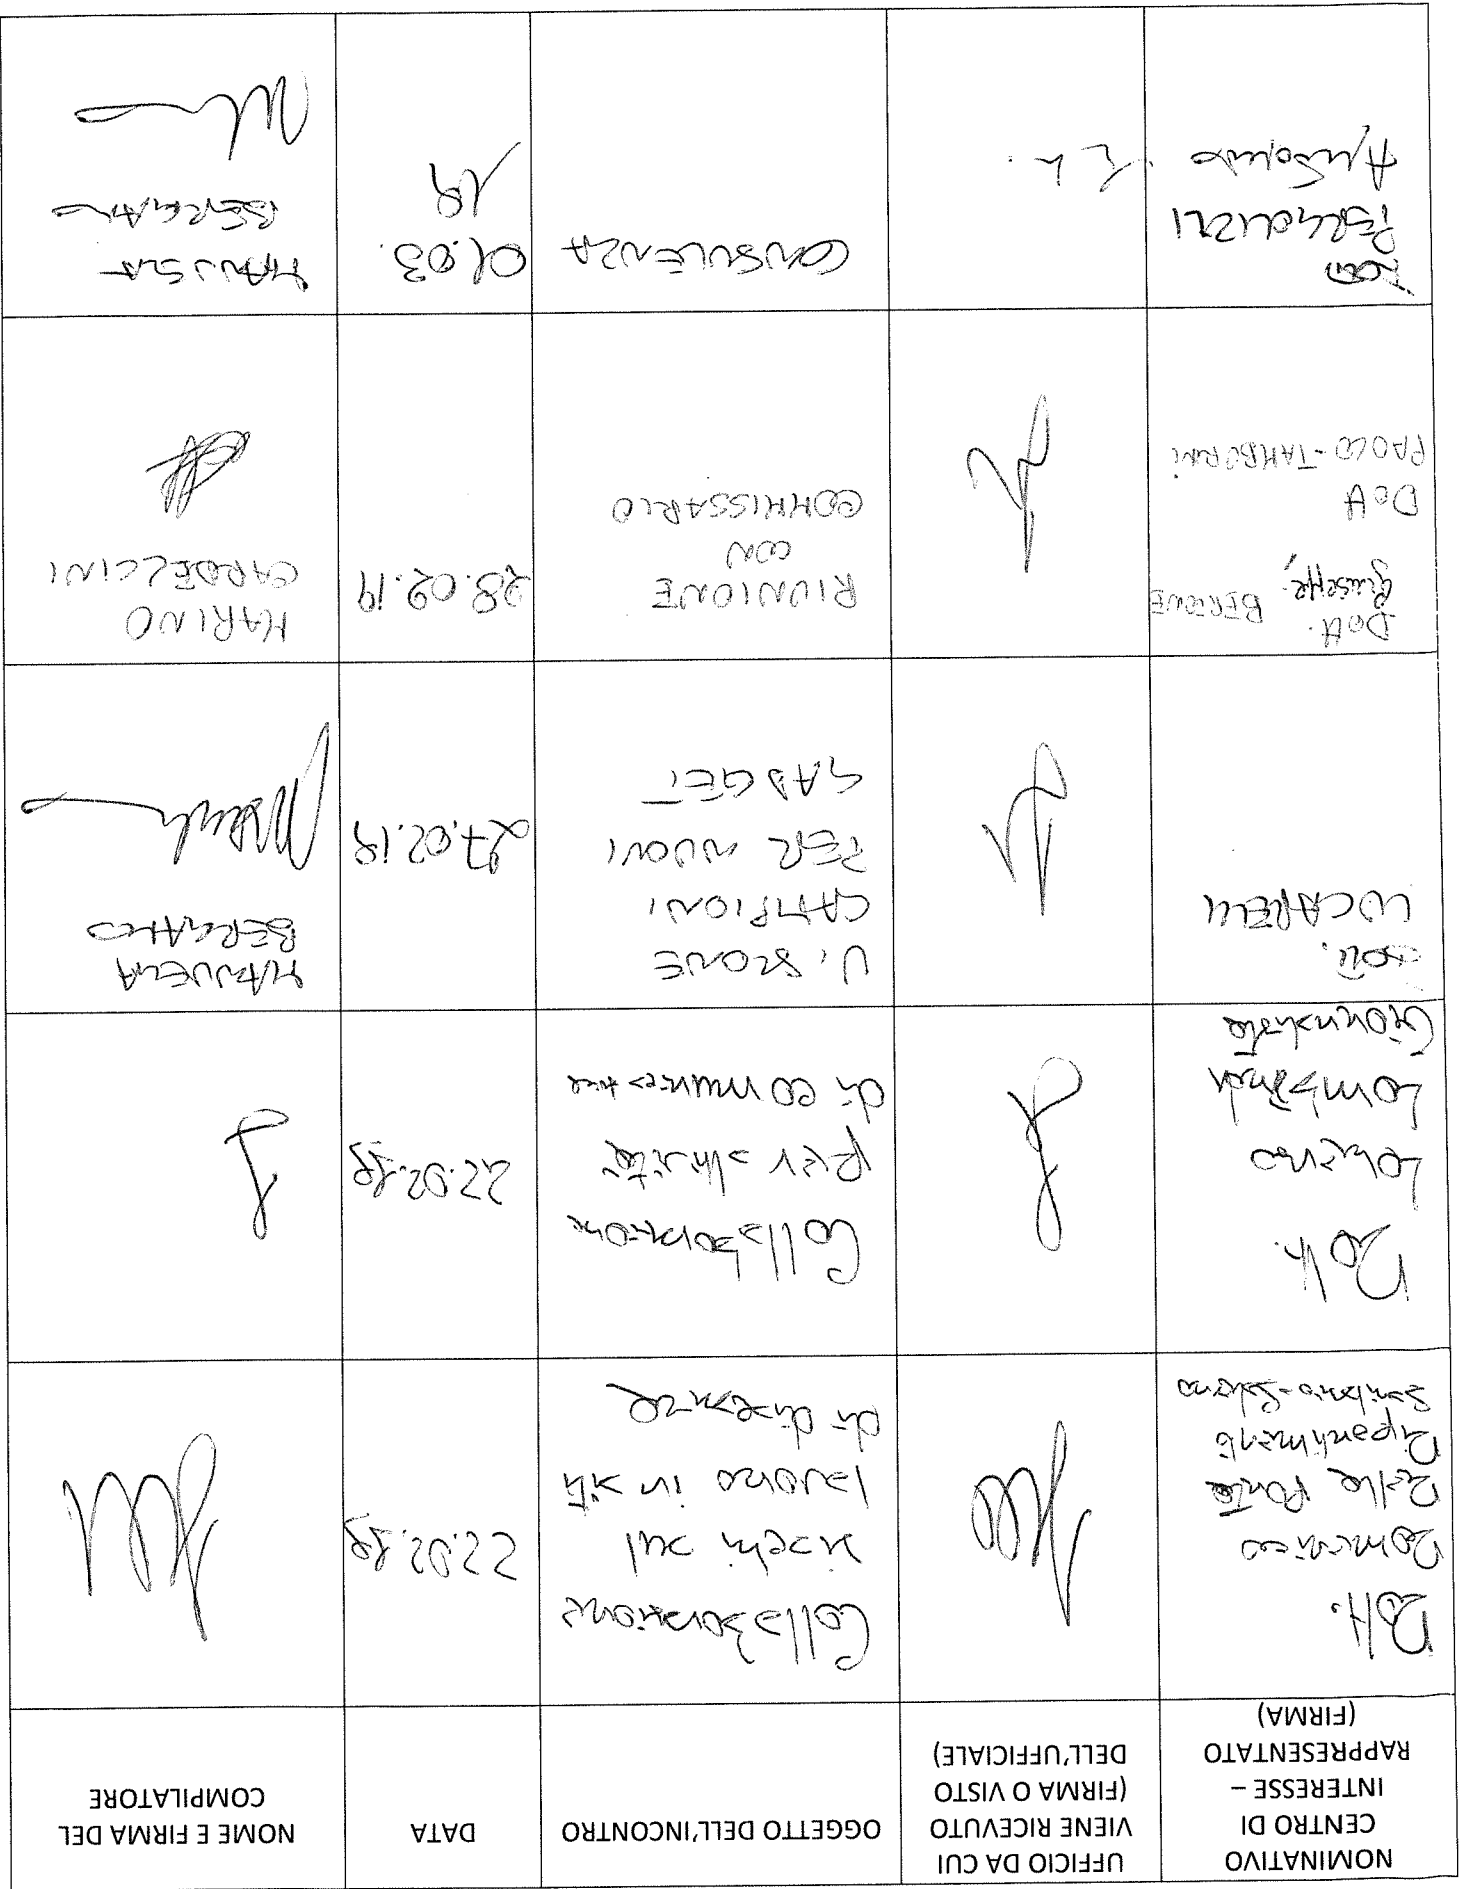 NOMINATIVO
CENTRO DI
INTERESSE –
RAPPRESENTATO
(FIRMA)
UFFICIO DA CUI
VIENE RICEVUTO
(FIRMA O VISTO
DELL'UFFICIALE)
OGGETTO DELL'INCONTRO
DATA
NOME E FIRMA DEL
COMPILATORE
Dott.
Domenico
Della Porta
Dipartimento
Collaborazione
rischi sul
lavoro in
di
22.02.19
Dott.
Lorenzo
Lombardi
Giornalista
Collaborazione
per attività
di
22.02.19
LUCARELLI
VISIONE
CAMPIONI
PER NUOVI
GADGET
27.02.19
MANUELA
BERGAMO
Dott.
Giuseppe BERTONE
Dott
PAOLO - TAMBORINI
RIUNIONE
CON
COMMISSARIO
28.02.19
MARINO
CARDELLINI
Antonino
CONSULENZA
01.03.
19
MANUELA
BERGAMO